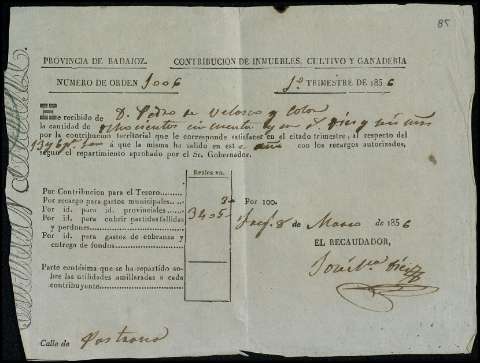 85
PROVINCIA DE BADAJOZ. CONTRIBUCION DE INMUEBLES, CULTIVO Y GANADERIA
NUMERO DE ORDEN 1006 1º TRIMESTRE DE 1856
HE recibido de D. Pedro de Velasco y
la cantidad de ochocientos cincuenta y
por la contribucion territorial que le corresponde satisfacer en el citado trimestre, al respecto del
á que la misma ha salido en este año con los recargos autorizados,
segun el repartimiento aprobado por el Sr. Gobernador.
Reales vn.
Por Contribucion para el Tesoro.
Por recargo para gastos municipales.
Por id. para id. provinciales.
Por id. para cubrir partidas fallidas
y perdones.
Por id. para gastos de cobranza y
entrega de fondos.
3405
Parte centésima que se ha repartido so-
bre las utilidades amillaradas á cada
contribuyente.
Por 100.
8 de Marzo de 1856
EL RECAUDADOR,
Calle de